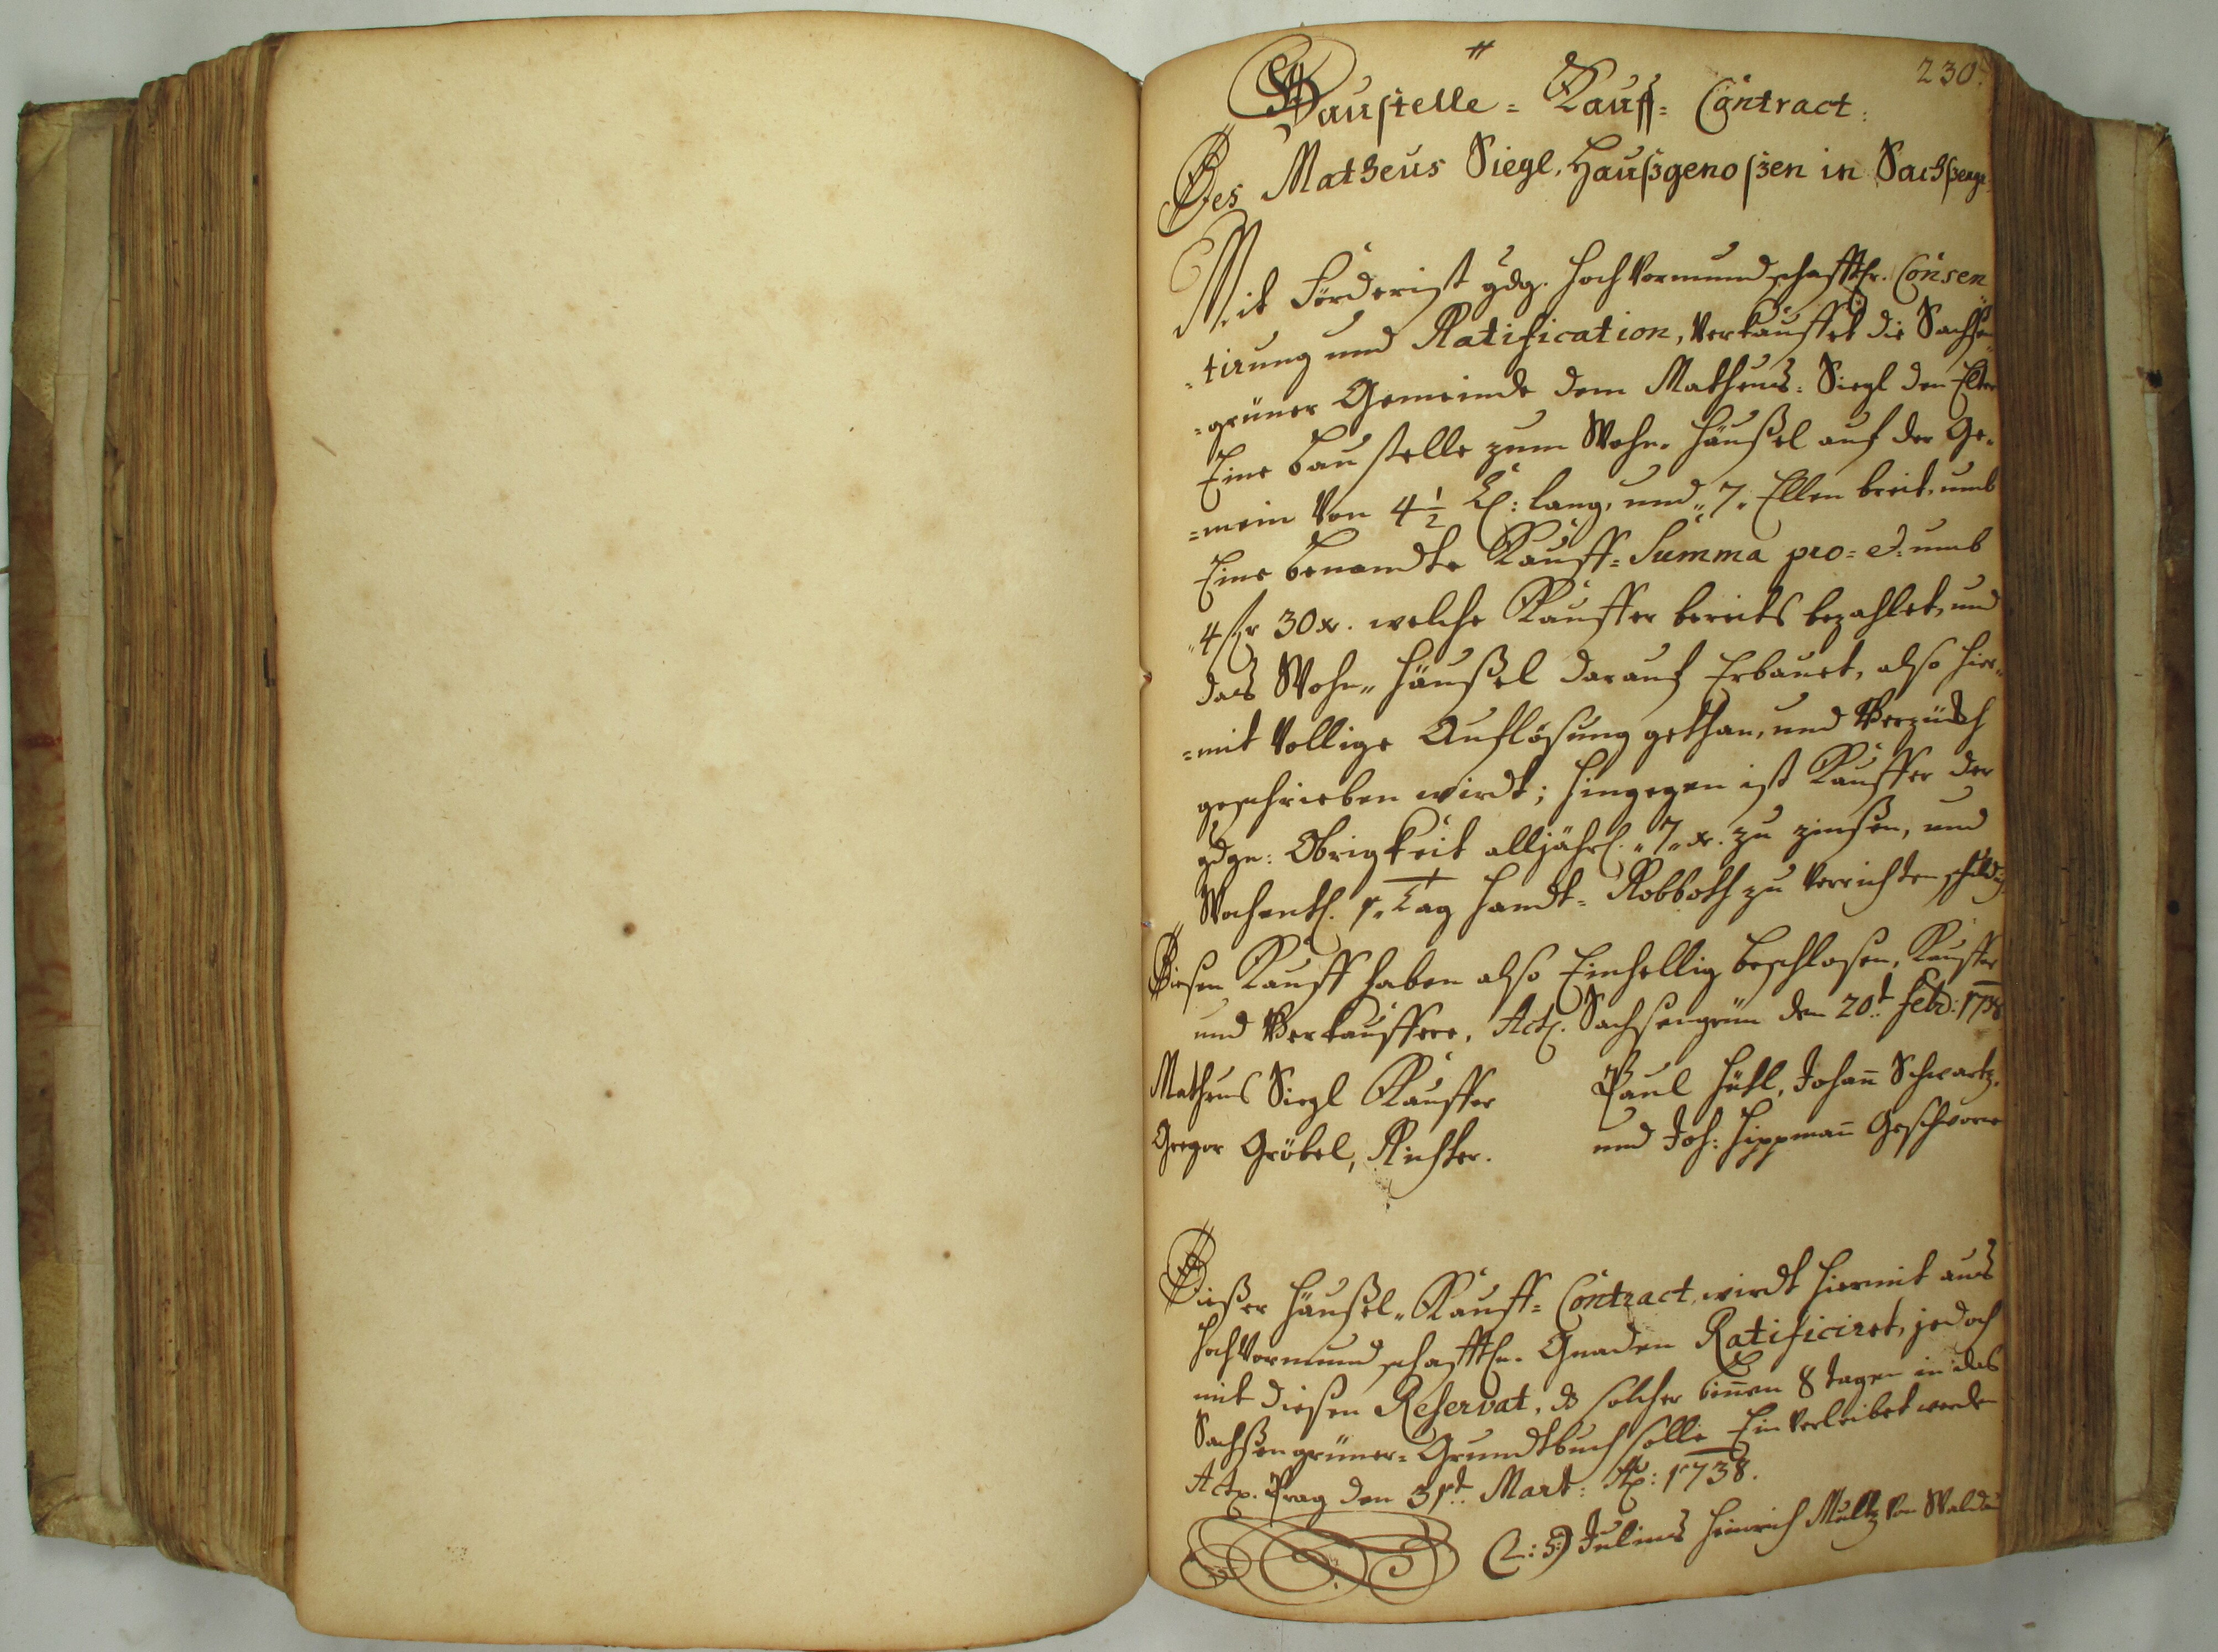 230.
Baustelle = Kauff = Contract.
Des Matheus Siegl, Haußgenoßen in Sachßengr.
Mit Förderist gdg. hochVormundschafftlr. Consen
= tirung und Ratification, Verkauffet die Sachsen
= grüner Gemeinde dem Matheus: Siegl den Elter
Eine baustelle zum Wohn- Häußel auf der Ge-
= mein Von 4 1/2 Ell: lang, und „7„ Ellen breit, umb
Eine benandte Kauff = Summa pro = et: umb
„4 fl 30 x. welche Kauffer bereits bezahlet, und
das Wohn„ Häußel darauf Erbauet, also hier„
= mit Vollige Auflößung gethan, und Verzücht
geschrieben wirdt; hingegen ist Kauffer der
gdgn: Obrigkeit alljährl. „7„ x. zu zinßen, und
Wochentl. 1„ Tag Handt = Robboth zu Verrichten schuldig
Dießen Kauff haben also Einhellig beschloßen, Kauffer
und Verkauffere, Act. Sachsengrün den 20t. Feb: 1738
Matheus Siegl Kauffer Paul Hüttl, Johann Schwartz,
Gregor Gröbel, Richter. und Joh: Hippmann Geschworne
Dießer Häußel„ Kauff = Contract, wirdt hiermit aus
hochVormundschafftln. Gnaden Ratificiret, jedoch
mit dießen Reservat, ds solcher binnen 8 tagen in das
Sachßengrüner = Grundtbuch solle EinVerleibet werden
Act. Prag den 31t. Mart: Ao: 1738.
(L: S:) Julius Heinrich Mültz Von Waldau